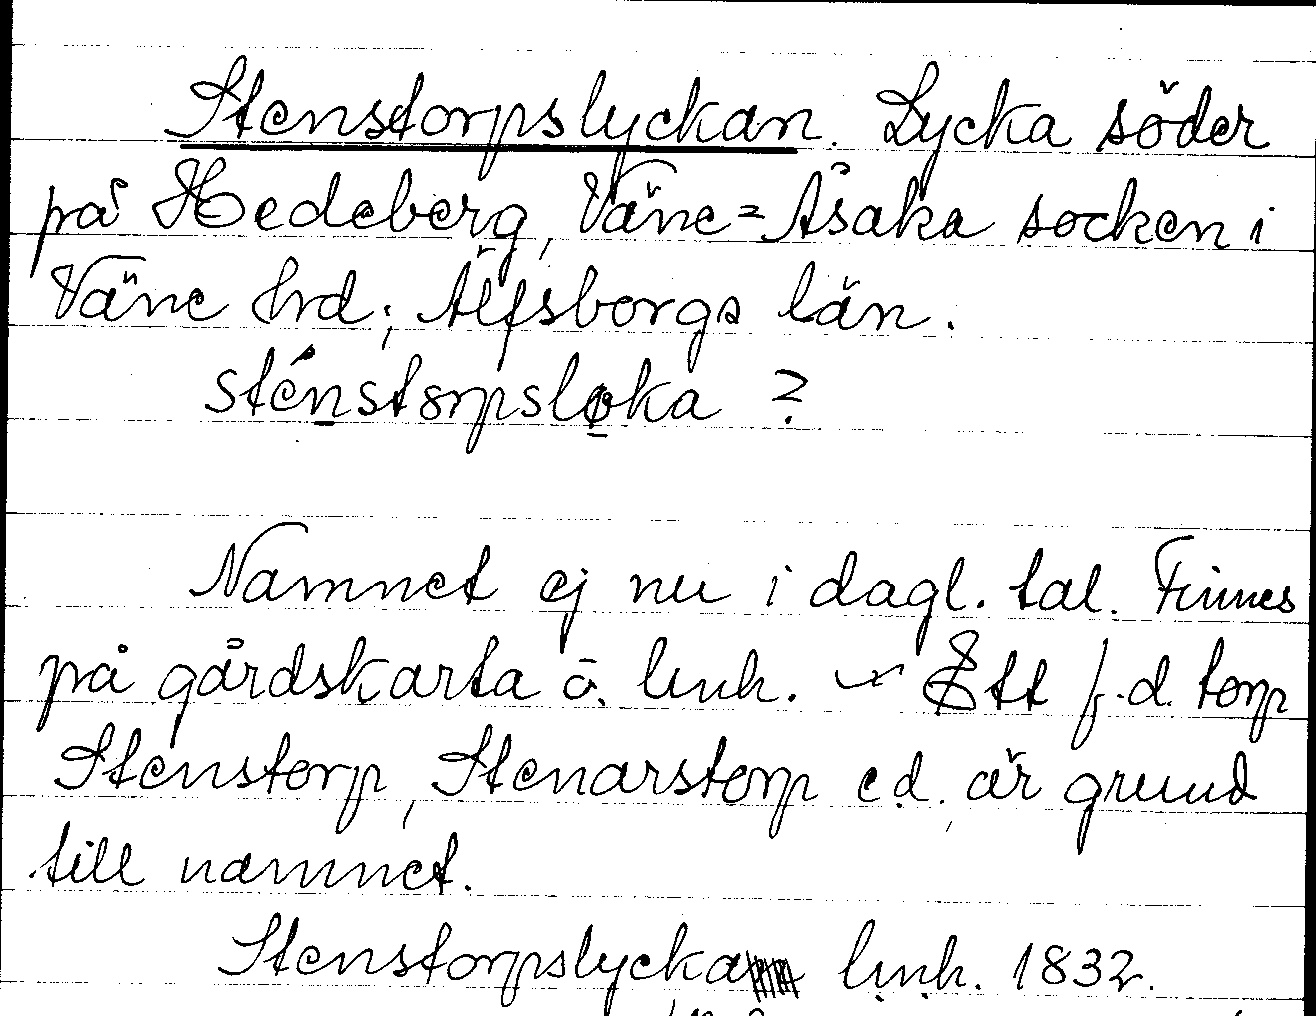 Stenstorpslyckan. Lycka söder
på Hedeberg, Väne=Åsaka socken i
Väne hrd; Älfsborgs län.
sténstorpsløka ?
Namnet ej nu i dagl. tal. Finnes
på gårdskarta o. lmh. Ett f.d. torp
Stenstorp, Stenarstorp e.d. är grund
till namnet.
Stenstorpslycka lmh. 1832.